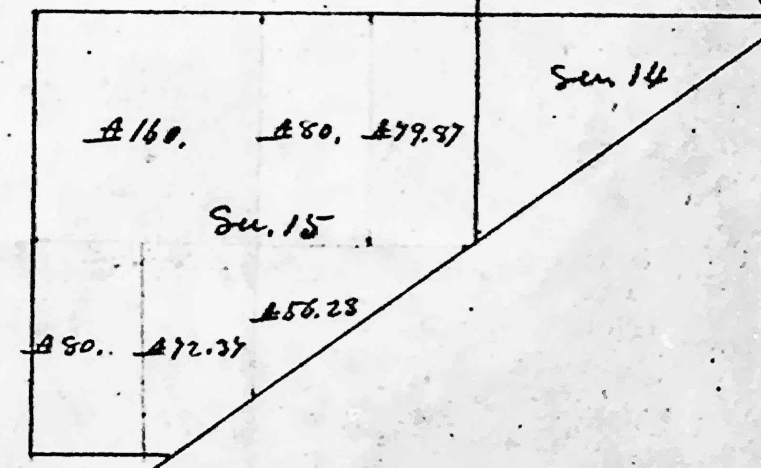 Sec 14
A 160.
A 80.
A 79.87
Sec. 15
A 56.23
A 80.
A 72.37